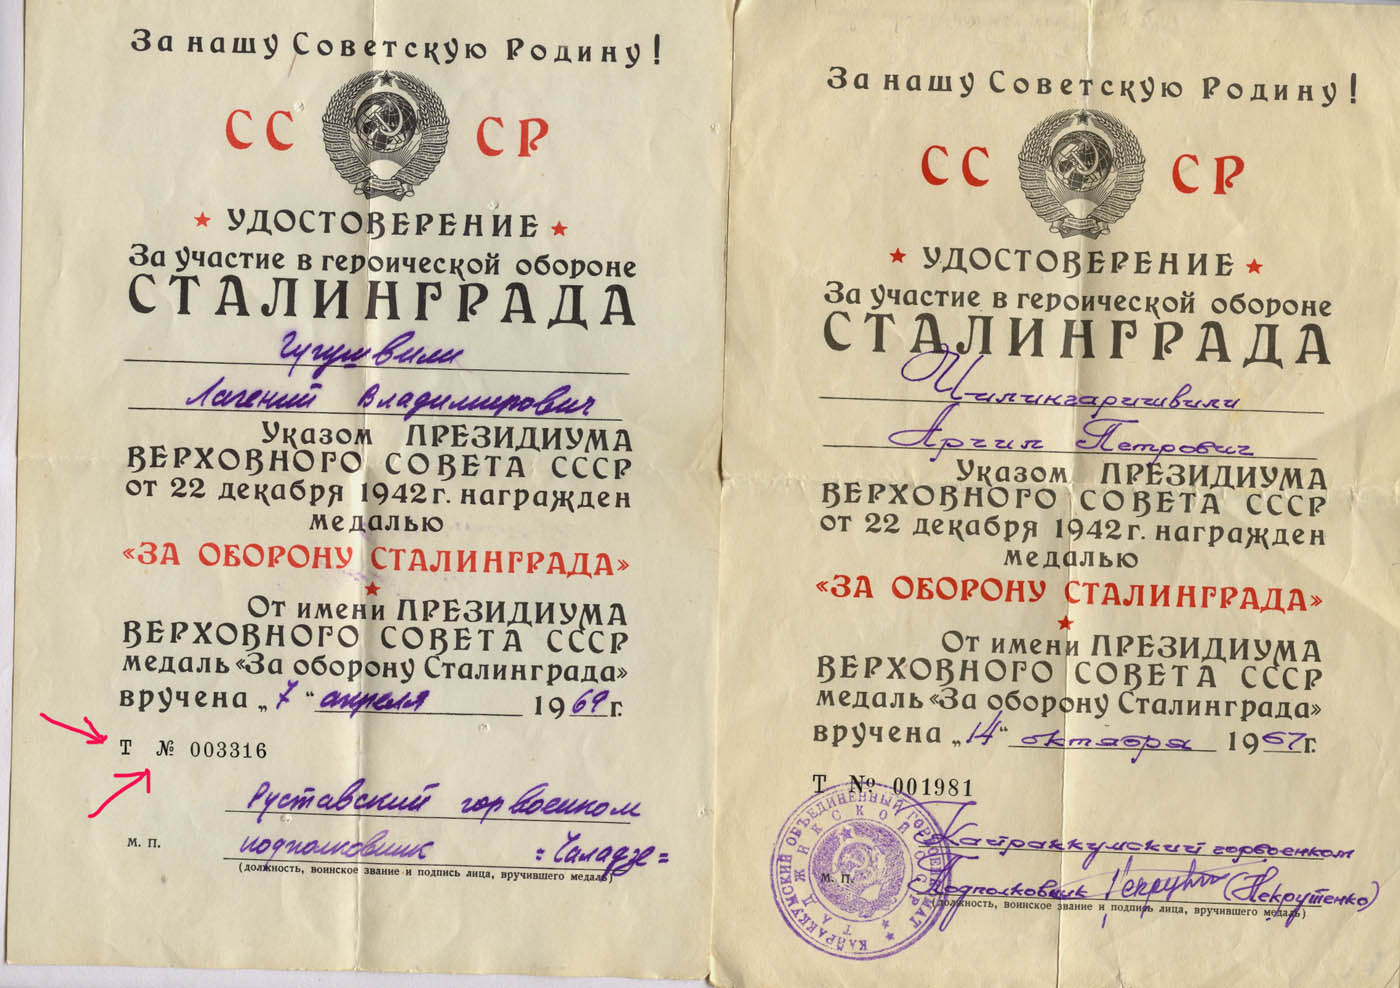 За нашу Советскую Родину!
СС СР
УДОСТОВЕРЕНИЕ
За участие в героической обороне
СТАЛИНГРАДА
Гугушвили
Лагений Владимирович
Указом ПРЕЗИДИУМА
ВЕРХОВНОГО СОВЕТА СССР
от 22 декабря 1942 г. награжден
медалью
«ЗА ОБОРОНУ СТАЛИНГРАДА»
От имени ПРЕЗИДИУМА
ВЕРХОВНОГО СОВЕТА СССР
медаль «За оборону Сталинграда»
вручена „7“ апреля 1969 г.
Т № 003316
Руставский горвоенком
м. п. подполковник =Чаладзе=
(должность, воинское звание и подпись лица, вручившего медаль)
За нашу Советскую Родину!
СС СР
УДОСТОВЕРЕНИЕ
За участие в героической обороне
СТАЛИНГРАДА
Чилингаришвили
Арчил Петрович
Указом ПРЕЗИДИУМА
ВЕРХОВНОГО СОВЕТА СССР
от 22 декабря 1942 г. награжден
медалью
«ЗА ОБОРОНУ СТАЛИНГРАДА»
От имени ПРЕЗИДИУМА
ВЕРХОВНОГО СОВЕТА СССР
медаль «За оборону Сталинграда»
вручена „14“ октября 1967 г.
Т № 001981
Кайраккумский горвоенком
м. п. Подполковник (Некрутенко)
(должность, воинское звание и подпись лица, вручившего медаль)
КАЙРАККУМСКИЙ ОБЪЕДИНЕННЫЙ ГОРВОЕНКОМАТ
ТАДЖИКСКОЙ ССР